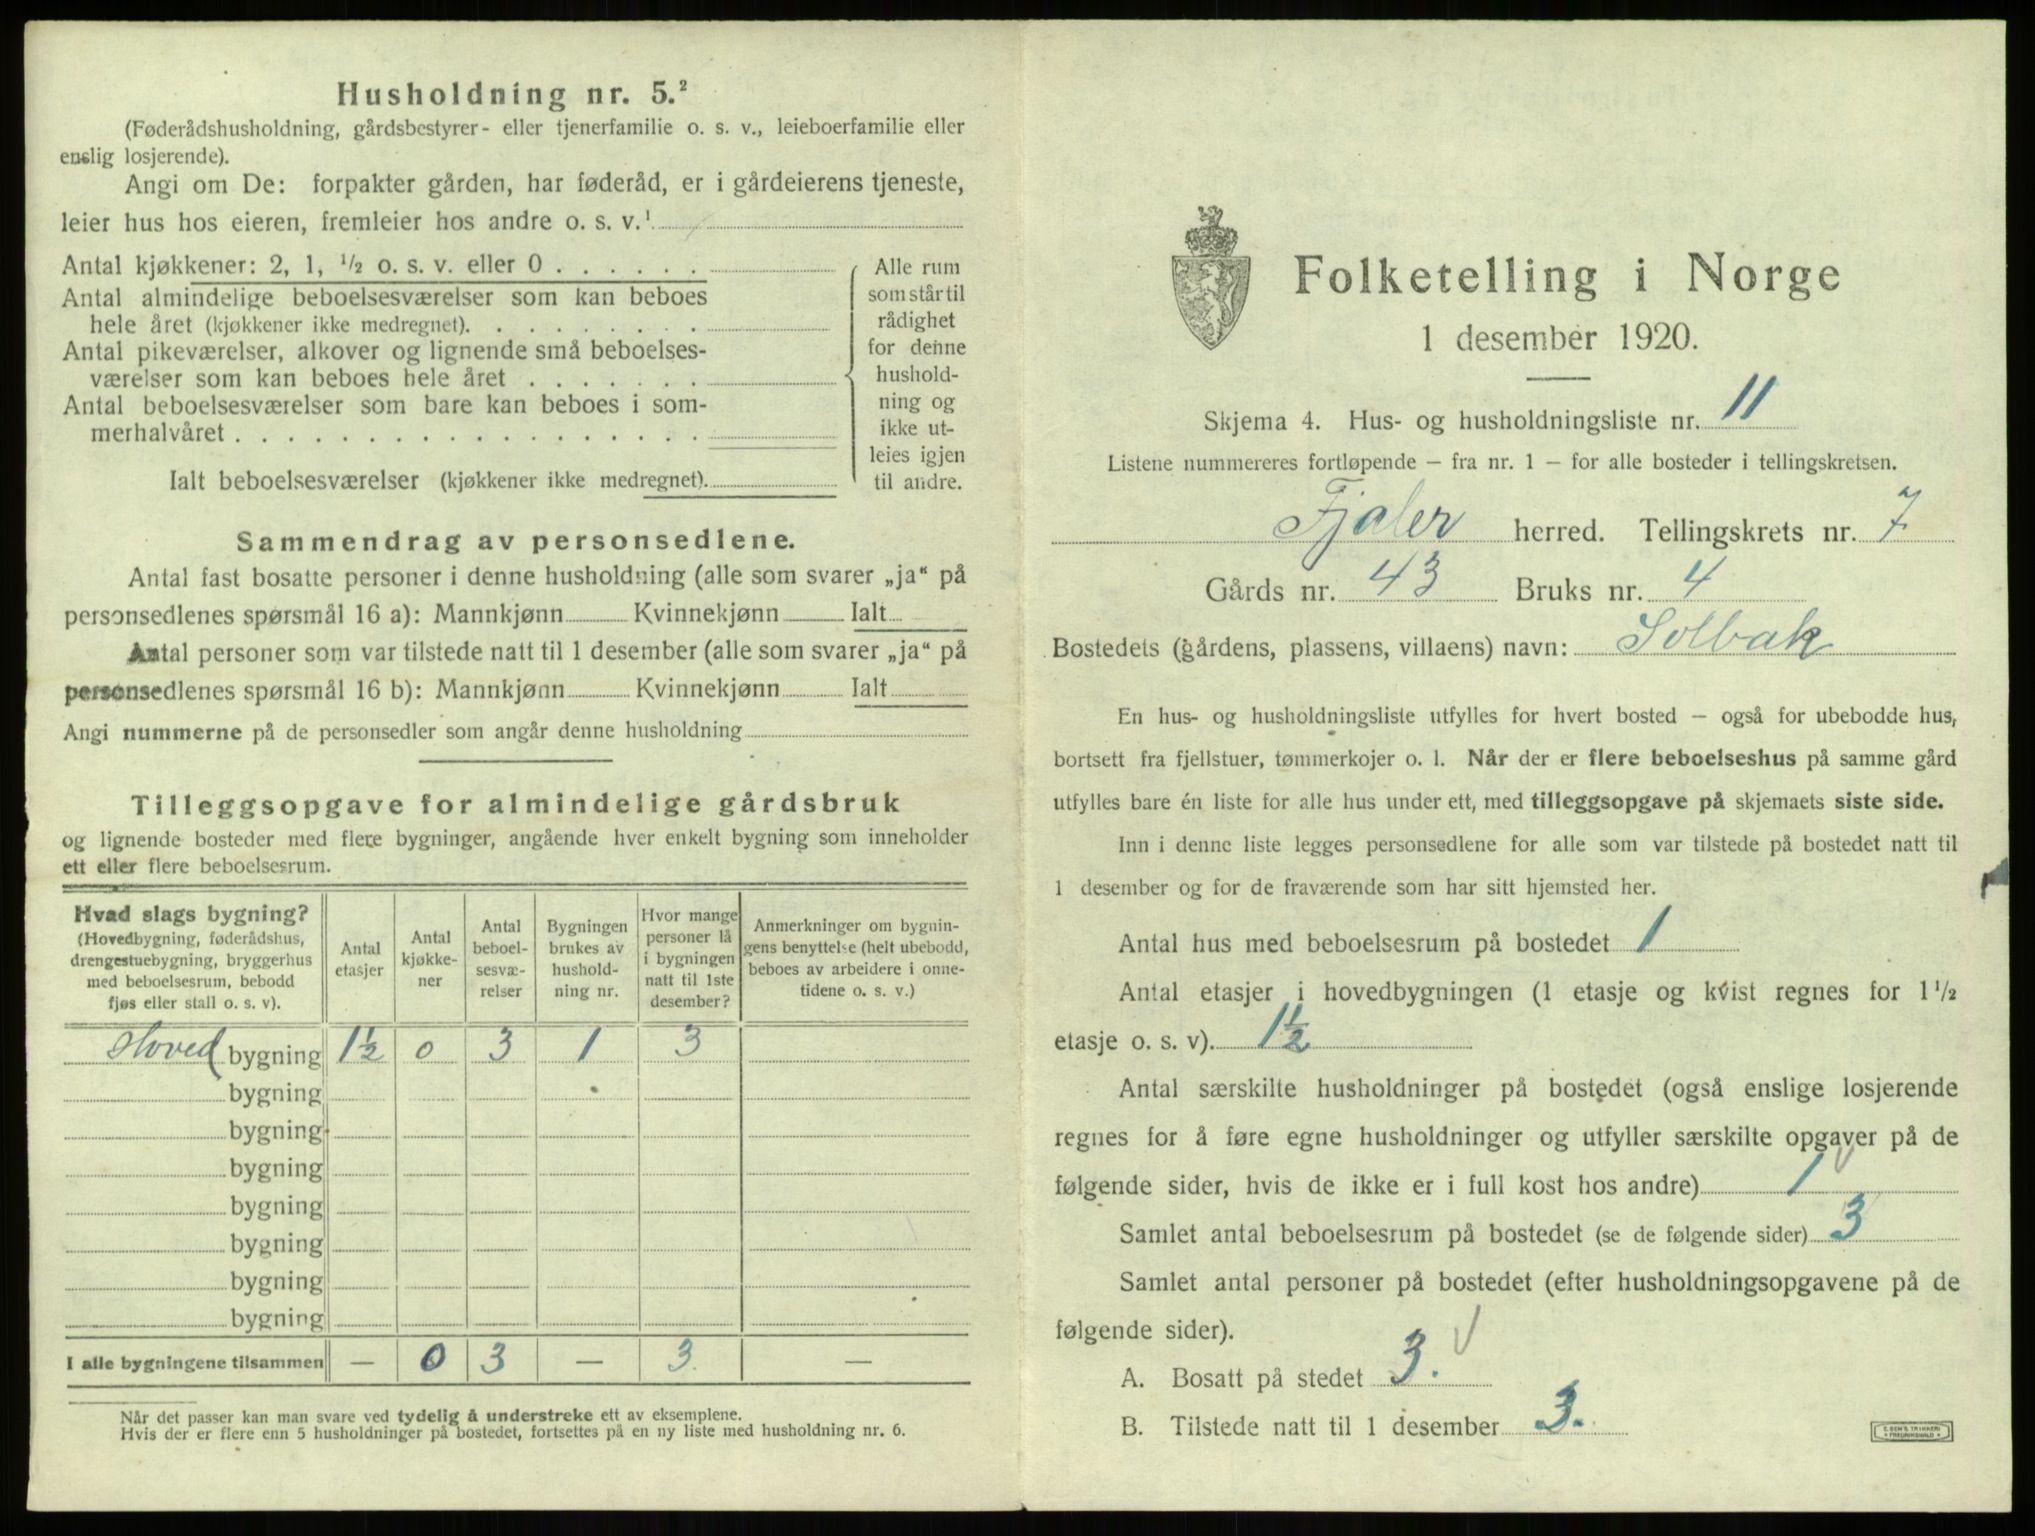 Husholdning nr. 5.²
(Føderådshusholdning, gårdsbestyrer- eller tjenerfamilie o. s. v., leieboerfamilie eller
enslig losjerende).
Angi om De: forpakter gården, har føderåd, er i gårdeierens tjeneste,
leier hus hos eieren, fremleier hos andre o. s. v.¹
Antal kjøkkener: 2, 1, ½ o. s. v. eller 0 . . . . . .
Antal almindelige beboelsesværelser som kan beboes
hele året (kjøkkener ikke medregnet). . . . . . . . .
Antal pikeværelser, alkover og lignende små beboelses-
værelser som kan beboes hele året . . . . . . .
Antal beboelsesværelser som bare kan beboes i som-
merhalvåret . . . . . . . . . . . . . . . . . .
Ialt beboelsesværelser (kjøkkener ikke medregnet).
Alle rum
som står til
rådighet
for denne
hushold-
ning og
ikke ut-
leies igjen
til andre.
Sammendrag av personsedlene.
Antal fast bosatte personer i denne husholdning (alle som svarer „ja“ på
personsedlenes spørsmål 16 a): Mannkjønn Kvinnekjønn Ialt
Antal personer som var tilstede natt til 1 desember (alle som svarer „ja“ på
personsedlenes spørsmål 16 b): Mannkjønn Kvinnekjønn Ialt
Angi nummerne på de personsedler som angår denne husholdning
Tilleggsopgave for almindelige gårdsbruk
og lignende bosteder med flere bygninger, angående hver enkelt bygning som inneholder
ett eller flere beboelsesrum.
Hvad slags bygning?
(Hovedbygning, føderådshus,
drengestuebygning, bryggerhus
med beboelsesrum, bebodd
fjøs eller stall o. s. v).
Antal
etasjer
Antal
kjøkke-
ner
Antal
beboel-
sesvæ-
relser
Bygningen
brukes av
hushold-
ning nr.
Hvor mange
personer lå
i bygningen
natt til 1ste
desember?
Anmerkninger om bygnin-
gens benyttelse (helt ubebodd,
beboes av arbeidere i onne-
tidene o. s. v.)
Hoved bygning 1½ 0 3 1 3
bygning
bygning
bygning
bygning
bygning
bygning
bygning
I alle bygningene tilsammen — 0 3 — 3. —
Når det passer kan man svare ved tydelig å understreke ett av eksemplene.
Hvis der er flere enn 5 husholdninger på bostedet, fortsettes på en ny liste med husholdning nr. 6.
Folketelling i Norge
1 desember 1920.
Skjema 4. Hus- og husholdningsliste nr. 11
Listene nummereres fortløpende – fra nr. 1 – for alle bosteder i tellingskretsen.
Fjaler herred. Tellingskrets nr. 7
Gårds nr. 43 Bruks nr. 4
Bostedets (gårdens, plassens, villaens) navn: Solbak
En hus- og husholdningsliste utfylles for hvert bosted – også for ubebodde hus,
bortsett fra fjellstuer, tømmerkojer o. l. Når der er flere beboelseshus på samme gård
utfylles bare én liste for alle hus under ett, med tilleggsopgave på skjemaets siste side.
Inn i denne liste legges personsedlene for alle som var tilstede på bostedet natt til
1 desember og for de fraværende som har sitt hjemsted her.
Antal hus med beboelsesrum på bostedet 1
Antal etasjer i hovedbygningen (1 etasje og kvist regnes for 1½
etasje o. s. v). 1½
Antal særskilte husholdninger på bostedet (også enslige losjerende
regnes for å føre egne husholdninger og utfyller særskilte opgaver på de
følgende sider, hvis de ikke er i full kost hos andre) 1
Samlet antal beboelsesrum på bostedet (se de følgende sider) 3
Samlet antal personer på bostedet (efter husholdningsopgavene på de
følgende sider).
A. Bosatt på stedet 3.
B. Tilstede natt til 1 desember 3.